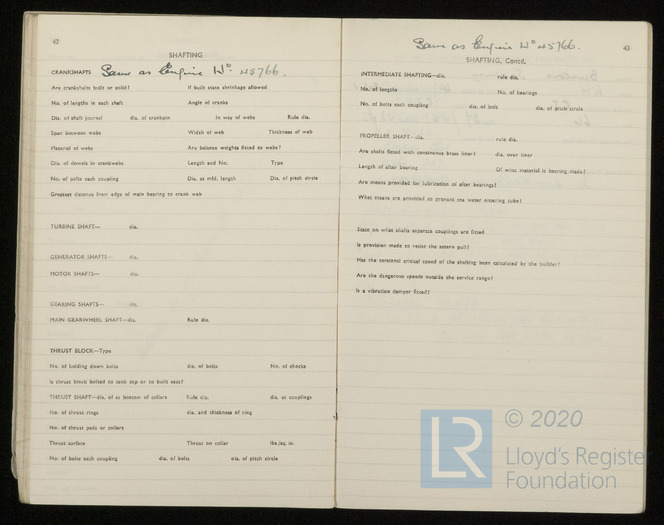 42
SHAFTING
CRANKSHAFTS Same as Engine No. 45766.
Are crankshafts built or solid? If built state shrinkage allowed
No. of lengths in each shaft Angle of cranks
Dia. of shaft journal dia. of crankpin In way of webs Rule dia.
Span between webs Width of web Thickness of web
Material of webs Are balance weights fitted to webs?
Dia. of dowels in crankwebs Length and No. Type
No. of bolts each coupling Dia. at mid. length Dia. of pitch circle
Greatest distance from edge of main bearing to crank web
TURBINE SHAFT— dia.
GENERATOR SHAFTS— dia.
MOTOR SHAFTS— dia.
GEARING SHAFTS— dia.
MAIN GEARWHEEL SHAFT—dia. Rule dia.
THRUST BLOCK—Type
No. of holding down bolts dia. of bolts No. of chocks
Is thrust block bolted to tank top or to built seat?
THRUST SHAFT—dia. of at bottom of collars Rule dia. dia. at couplings
No. of thrust rings dia. and thickness of ring
No. of thrust pads or collars
Thrust surface Thrust on collar lbs./sq. in.
No. of bolts each coupling dia. of bolts dia. of pitch circle
Same as Engine No 45766.
43
SHAFTING, Contd.
INTERMEDIATE SHAFTING—dia. rule dia.
No. of lengths No. of bearings
No. of bolts each coupling dia. of bolt dia. of pitch circle
PROPELLER SHAFT—dia. rule dia.
Are shafts fitted with continuous brass liner? dia. over liner
Length of after bearing Of what material is bearing made?
Are means provided for lubrication of after bearings?
What means are provided to prevent sea water entering tube?
State on what shafts separate couplings are fitted
Is provision made to resist the astern pull?
Has the torsional critical speed of the shafting been calculated by the builder?
Are the dangerous speeds outside the service range?
Is a vibration damper fitted?
LR
© 2020
Lloyd's Register
Foundation